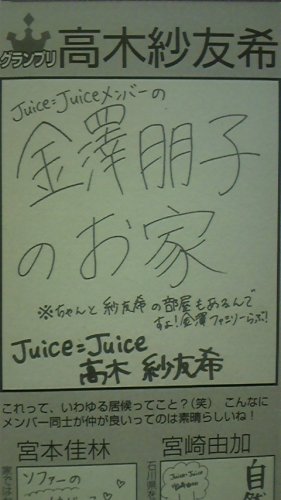 グランプリ 高木紗友希
Juice=Juiceメンバーの
金澤朋子
のお家
※ちゃんと紗友希の部屋もあるんで
すよ!金澤ファミリーらぶ!
Juice=Juice
高木 紗友希
これって、いわゆる居候ってこと?(笑) こんなに
メンバー同士が仲が良いってのは素晴らしいね!
宮本佳林 宮崎由加
ソファーの
石川県
Juice=Juice
自然